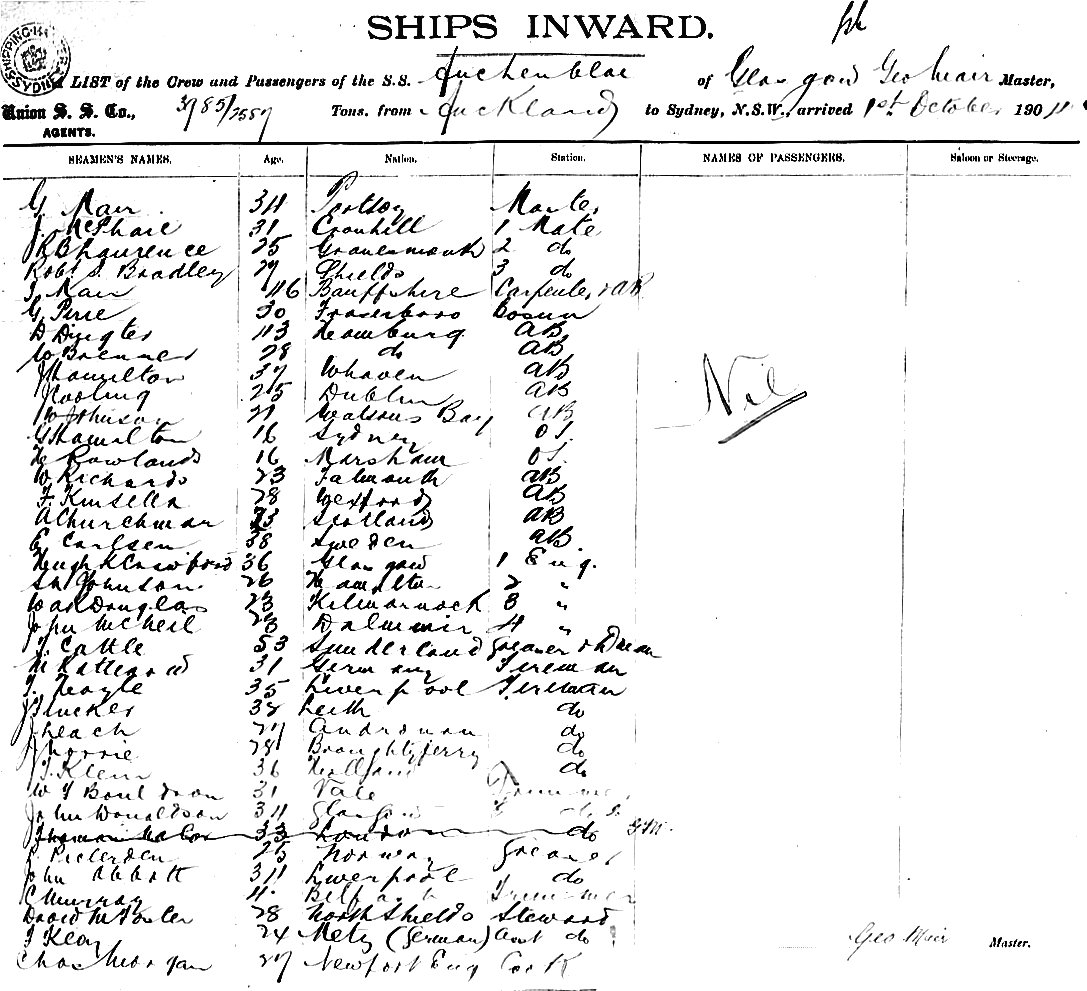 SHIPS INWARD.
SHIPPING MASTER SYDNEY
A LIST of the Crew and Passengers of the S.S. Auchenblae of Glasgow Geo Mair Master,
Union S. S. Co., AGENTS. 3985/2557 Tons. from Auckland to Sydney, N.S.W., arrived 1st October 190
SEAMEN'S NAMES. Age. Nation. Station. NAMES OF PASSENGERS. Saloon or Steerage.
G. Mair 34 Portsoy Master
J. McPhail 31 Cronhill 1 Mate
R B Laurence 25 Gravesmouth 2 do
Robt. S. Bradley 29 Shields 3 do
J. Mair 46 Banffshire Carpenter & AB
G. Pirie 30 Fraserboro Bosun
D Dingter 43 Hamburg AB
W Brenner 28 do AB
J Hamilton 37 Whaven AB
J Cooling 25 Dublin AB
W Johnson 21 Watsons Bay AB
G Hamilton 16 Sydney OS.
H Rowlands 16 Marsham OS.
W Richards 23 Falmouth AB
F. Kinsella 28 Wexford AB
A Churchman 23 Scotland AB
C Carlsen 38 Sweden AB.
Hugh K Crawford 36 Glasgow 1 Eng.
Johnson 26 Hamilton 2 "
Douglas 23 Kilmarnock 3 "
John McNeil 23 Dalmuir 4 "
T. Cattle 53 Sunderland Greaser & Dman
31 Germany Fireman
T. Heagle 35 Liverpool Fireman
J Tucker 38 Leith do
J Leach 27 do
J Norrie 28 Broughtyferry do
J. Klein 36 Holland do
W J 31 Vale Trimmer
John Donaldson 34 Glasgow do
Thomas 33 London do G.M.
25 Norway Greaser
John Abbott 34 Liverpool do
C Murray Belfast Trimmer
David M Foster 28 North Shields Steward
J Kear 24 Metz (German) asst do
Chas Morgan 27 Newport Eng Cook
Nil
Geo Mair Master.